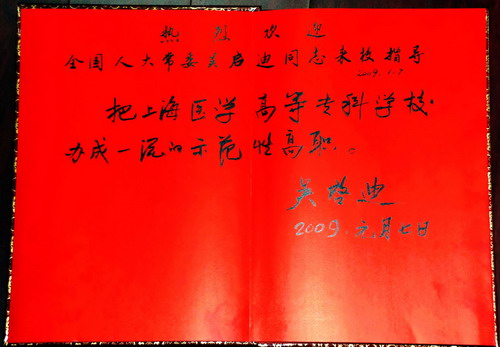 热烈欢迎
全国人大常委吴启迪同志来校指导
2009.1.7
把上海医学高等专科学校
办成一流的示范性高职。
吴启迪
2009.元月七日